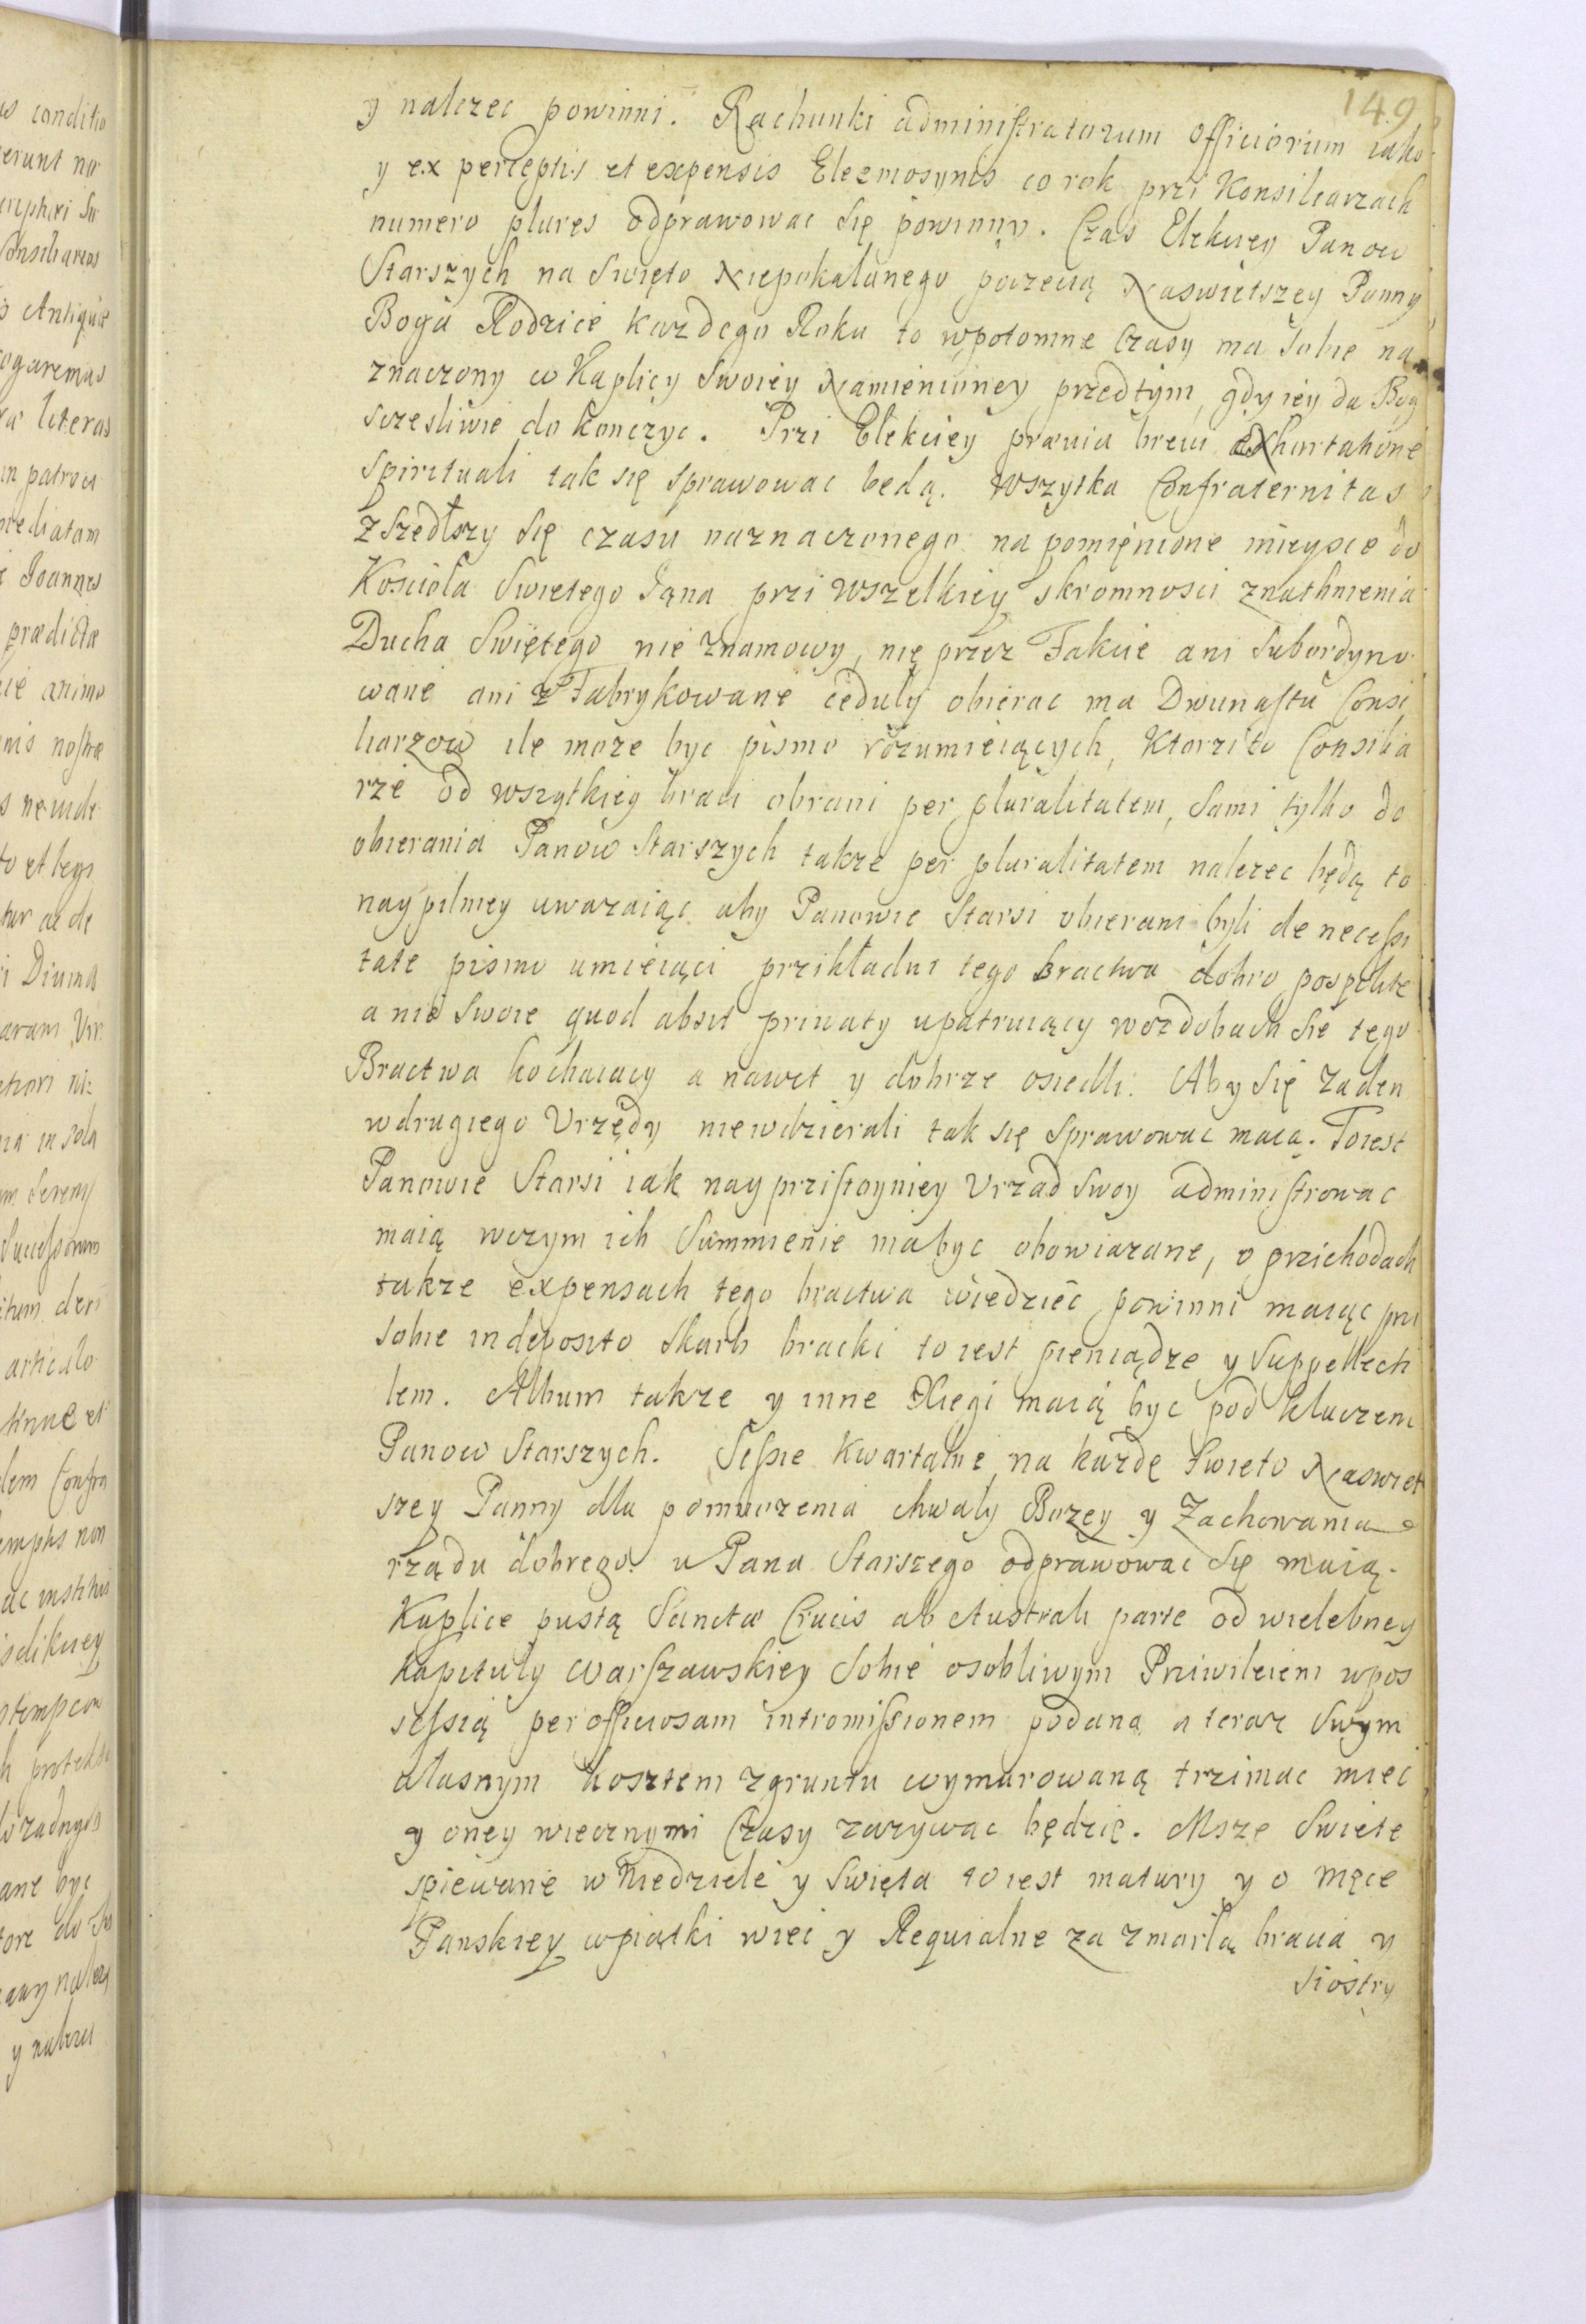 149
y nalezec powinni. Rachunki administratorum officiorum iako
y ex perceptis et expensis Eleemosynis co rok przi Konsiliarzach
numero plures odprawowac się powinny. Czas Elekciey Panow
Starszych na Swięto Niepokalanego poczecią Naswietszey Panny
Boga Rodzice kazdego Roku to wpotomne Czasy ma sobie na
znaczony w Kaplicy Swoiey Namienioney przedtym, gdy iey da Bog
szczesliwie do konczyc. Przi Elekciey prævia brevi exhortatione
Spirituali tak się sprawowac będą. Wszytka Confraternitas
Zszedłszy się czasu naznaczonego na pomięnione mieysce do
Kosciola Swietego Jana przi wszelkiey skromnosci znathnienia
Ducha Swiętego nie znamowy, nię przez Fakcie ani Subordyno
wane ani z Fabrykowane ceduly obierac ma Dwunastu Consi
liarzow ile moze byc pismo rozumieiących, Ktorzi to Consilia
rze od wszytkiey braci obrani per pluralitatem, sami tylko do
obierania Panow Starszych takze per pluralitatem nalezec będą to
naypilniey uwazaiąc aby Panowie Starsi obierani byli de necessi
tate pismo umieiąci przikładni tego Bractwa dobro pospolite
a nie Swoie quod absit priuaty upatruiący wozdobach się tego
Bractwa kochaiacy a nawet y dobrze osiedli. Aby się zaden
wdrugiego Vrzędy niewdzierali tak się sprawowac maią. To iest
Panowie Starsi iak nayprzistoyniey Vrzad swoy administrowac
maią wczym ich Summienie ma byc obowiazane, o przichodach
takze expensach tego bractwa wiedziec powinni maiąc pri
sobie in deposito skarb bracki to iest pieniądze y Suppellecti
lem. Album takze y inne Xięgi maią byc pod kluczem
Panow Starszych. Sessie kwartalne na kazdę Swieto Naswiet
szey Panny dla pomnozenia chwaly Bozey y Zachowania
rządu dobrego u Pana Starszego odprawowac się maią.
Kaplice pustą Sanctæ Crucis ab Australi parte od wielebney
Kapituly Warszawskiey sobie osobliwym Priwileiem wpos
sessią per officiosam intromissionem podaną a teraz Swym
własnym kosztem zgruntu wymurowaną trzimac miec
y oney wiecznymi Czasy zazywac będzię. Msze Swiete
spiewane w Niedziele y Swięta to iest matury y o Męce
Panskiey wpiątki wiec y Requialne za zmarłą bracia y
Siostry